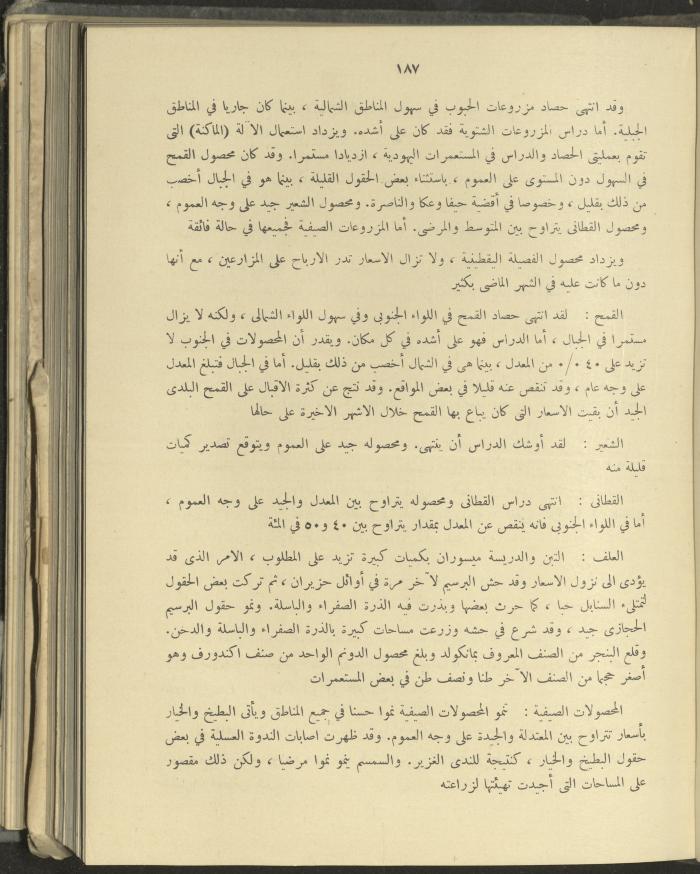 ١٨٧
وقد انتهى حصاد مزروعات الحبوب في سهول المناطق الشمالية ، بينما كان جاريا في المناطق
الجبلية. أما دراس المزروعات الشتوية فقد كان على أشده. ويزداد استعمال الآلة (الماكنة) التى
تقوم بعمليتى الحصاد والدراس في المستعمرات اليهودية ، ازديادا مستمرا. وقد كان محصول القمح
في السهول دون المستوى على العموم ، باستثناء بعض الحقول القليلة ، بينما هو في الجبال أخصب
من ذلك بقليل ، وخصوصا في أقضية حيفا وعكا والناصرة. ومحصول الشعير جيد على وجه العموم ،
ومحصول القطانى يتراوح بين المتوسط والمرضى. أما المزروعات الصيفية فجميعها في حالة فائقة
ويزداد محصول الفصيلة اليقطينية ، ولا تزال الاسعار تدر الارباح على المزارعين ، مع أنها
دون ما كانت عليه في الشهر الماضى بكثير
القمح : لقد انتهى حصاد القمح في اللواء الجنوبى وفي سهول اللواء الشمالى ، ولكنه لا يزال
مستمرا في الجبال ، أما الدراس فهو على أشده في كل مكان. ويقدر أن المحصولات في الجنوب لا
تزيد على ٤٠ ٠/٠ من المعدل ، بينما هى في الشمال أخصب من ذلك بقليل. أما في الجبال فتبلغ المعدل
على وجه عام ، وقد تنقص عنه قليلا في بعض المواقع. وقد نتج عن كثرة الاقبال على القمح البلدى
الجيد أن بقيت الاسعار التى كان يباع بها القمح خلال الاشهر الاخيرة على حالها
الشعير : لقد أوشك الدراس أن ينتهى. ومحصوله جيد على العموم ويتوقع تصدير كميات
قليلة منه
القطانى : انتهى دراس القطانى ومحصوله يتراوح بين المعدل والجيد على وجه العموم ،
أما في اللواء الجنوبى فانه ينقص عن المعدل بمقدار يتراوح بين ٤٠ و٥٠ في المئة
العلف : التبن والدريسة ميسوران بكميات كبيرة تزيد على المطلوب ، الامر الذى قد
يؤدى الى نزول الاسعار وقد حش البرسيم لآخر مرة في أوائل حزيران ، ثم تركت بعض الحقول
لتمتلىء السنابل حبا ، كما حرث بعضها وبذرت فيه الذرة الصفراء والباسلة. ونمو حقول البرسيم
الحجازى جيد ، وقد شرع في حشه وزرعت مساحات كبيرة بالذرة الصفراء والباسلة والدخن.
وقلع البنجر من الصنف المعروف بمانكولد وبلغ محصول الدونم الواحد من صنف اكندورف وهو
أصغر حجما من الصنف الآخر طنا ونصف طن في بعض المستعمرات
المحصولات الصيفية : تنمو المحصولات الصيفية نموا حسنا في جميع المناطق ويأتى البطيخ والخيار
بأسعار تتراوح بين المعتدلة والجيدة على وجه العموم. وقد ظهرت اصابات الندوة العسلية في بعض
حقول البطيخ والخيار ، كنتيجة للندى الغزير. والسمسم ينمو نموا مرضيا ، ولكن ذلك مقصور
على المساحات التى أجيدت تهيئتها لزراعته